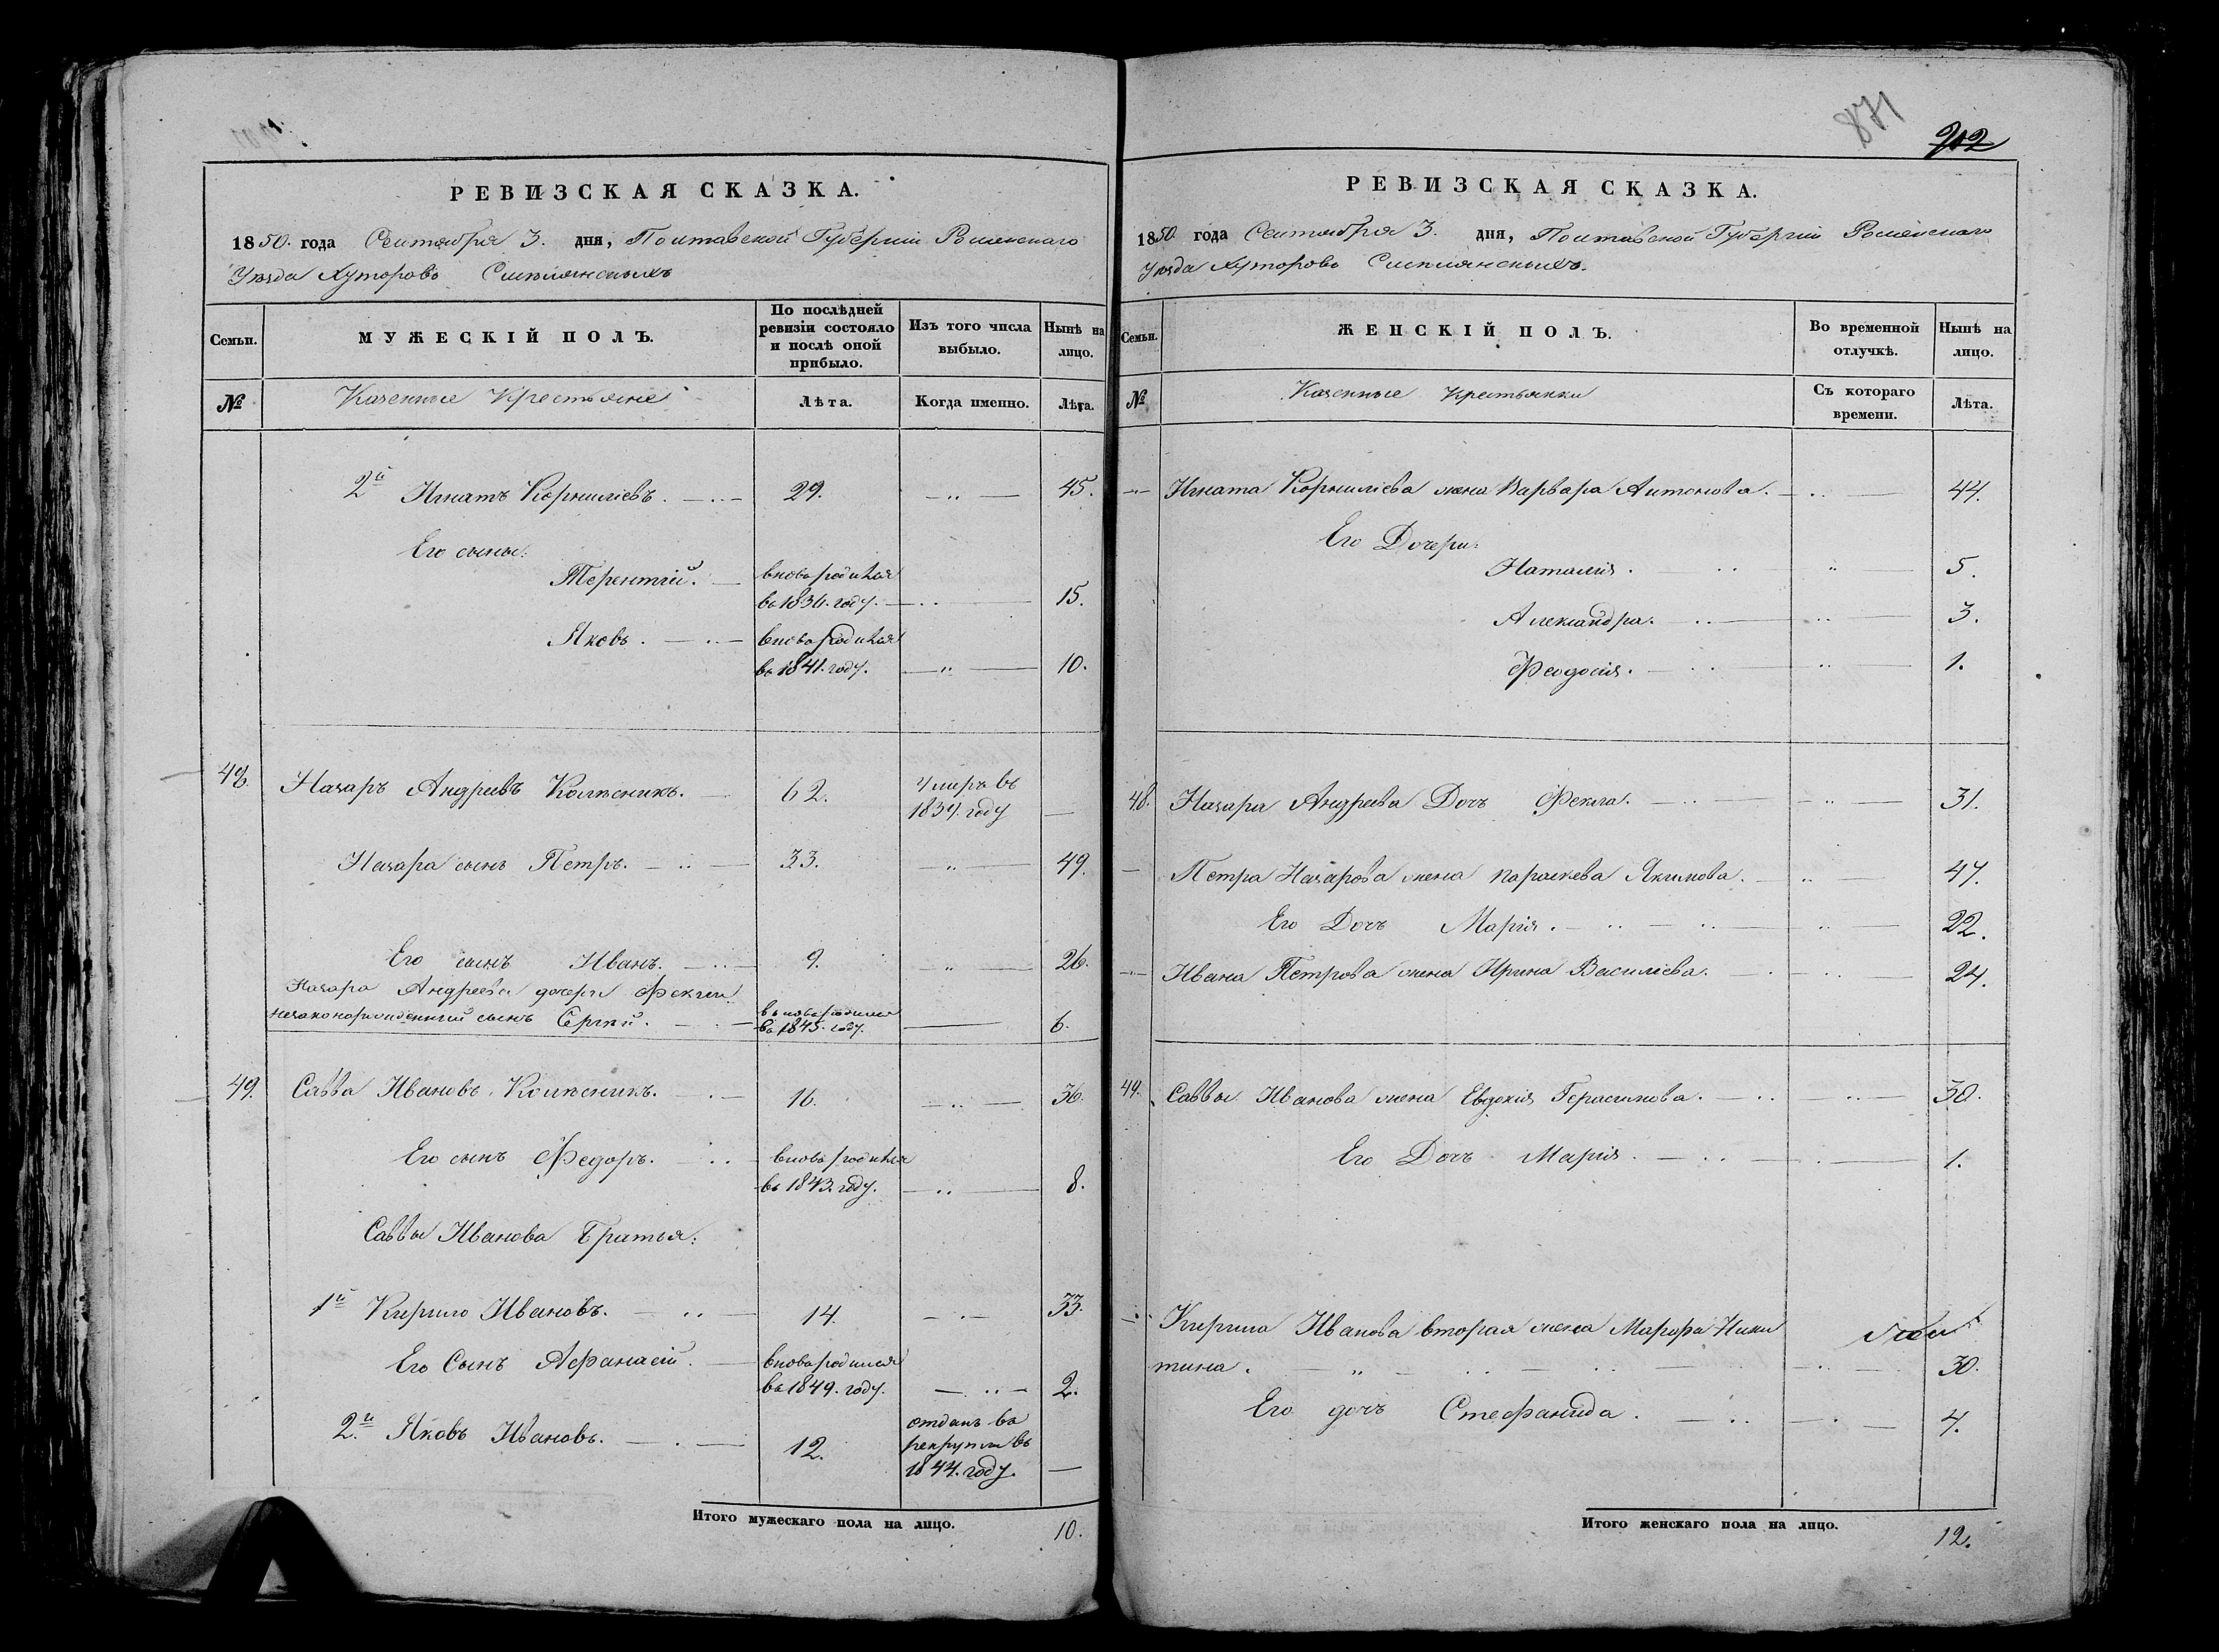 РЕВИЗСКАЯ СКАЗКА.
1850. года Сентября 3. дня, Полтавской Губерніи Роменскаго
Уѣзда Хуторовъ
Семьи.
МУЖЕСКІЙ ПОЛЪ.
По послѣдней ревизіи состояло и послѣ оной прибыло.
Изъ того числа выбыло.
Нынѣ на лицо.
№
Казенные Крестьяне
Лѣта.
Когда именно.
Лѣта.
2й Игнатъ Корниліевъ. 29. 45.
Его сыны:
Терентій. вновь родился
въ 1836. году. 15.
Яковъ. вновь родился
въ 1841. году. 10.
48. Назаръ Андреевъ Колѣсникъ. 62. Умеръ въ
1839. году
Назара сынъ Петръ. 33. 49.
Его сынъ Иванъ. 9. 26.
Назара Андреева дочери Феклы
незаконорожденный сынъ Сергій. вновь родился
въ 1845. году. 6.
49. Савва Ивановъ Колѣсникъ. 16. 36.
Его сынъ Федоръ. вновь родился
въ 1843. году. 8.
Саввы Иванова Братья:
1й Кирило Ивановъ. 14. 33.
Его Сынъ Афанасій. вновь родился
въ 1849. году. 2.
2й Яковъ Ивановъ. 12. отданъ въ
рекруты въ
1844. году.
Итого мужескаго пола на лицо. 10.
871
212
РЕВИЗСКАЯ СКАЗКА.
1850. года Сентября 3. дня, Полтавской Губерніи Роменскаго
Уѣзда Хуторовъ
Семьи.
ЖЕНСКІЙ ПОЛЪ.
Во временной отлучкѣ.
Нынѣ на лицо.
№
Казенные Крестьянки
Съ котораго времени.
Лѣта.
Игната Корниліева жена Варвара Антонова. 44.
Его Дочери:
Наталия. 5.
Александра. 3.
Феодосія. 1.
48. Назара Андреева Дочь Фекла. 31.
Петра Назарова жена Параскева Якимова. 47.
Его Дочь Марія. 22.
Ивана Петрова жена Ирина Василіева. 24.
49. Саввы Иванова жена Евдокія Герасимова. 30.
Его Дочь Марія. 1.
Кирила Иванова вторая жена Марфа Ники
тина. 30.
Его дочь Стефанида. 4.
Итого женскаго пола на лицо. 12.